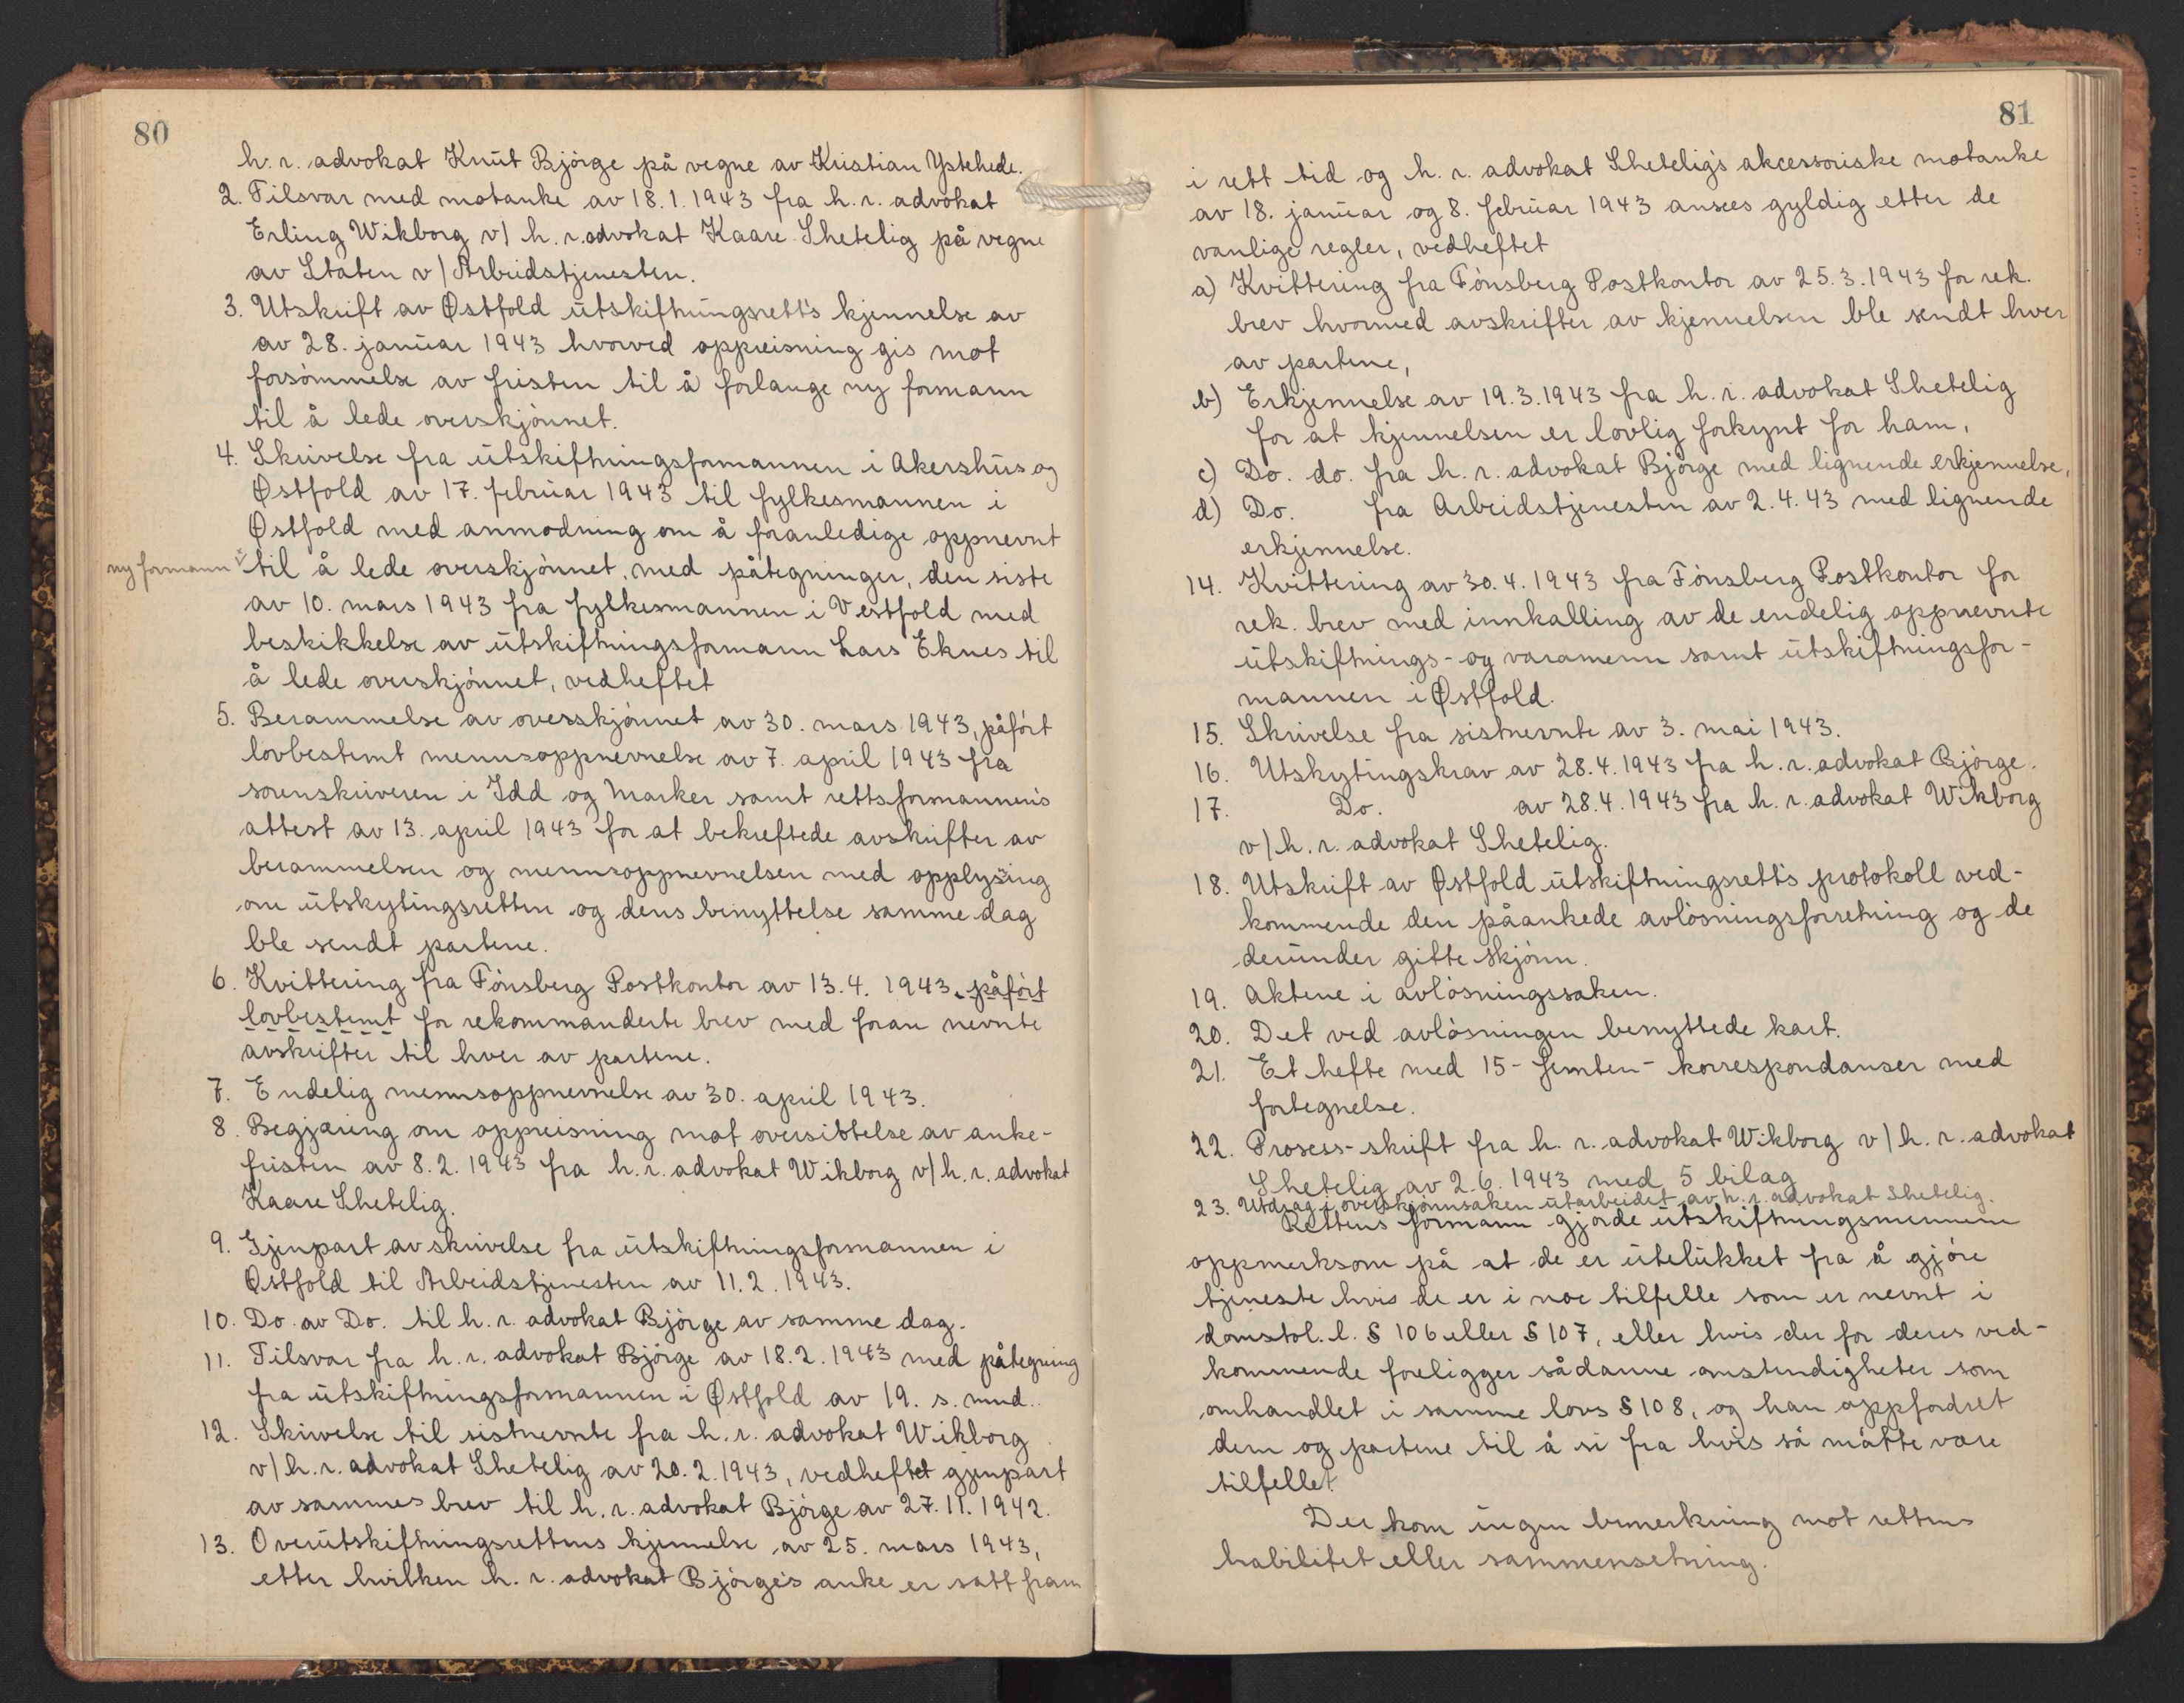 80
h. r. advokat Knut Bjørge på vegne av Kristian Ystehede.
2. Tilsvar med motanke av 18.1.1943 fra h. r. advokat
Erling Wikborg v/ h. r. advokat Kaare Shetelig på vegne
av Staten v/ Arbeidstjenesten.
3. Utskrift av Østfold utskiftningsrett's kjennelse av
av 28. januar 1943 hvorved oppreisning gis mot
forsømmelse av fristen til å forlange ny formann
til å lede overskjønnet.
4. Skrivelse fra utskiftningsformannen i Akershus og
Østfold av 17. februar 1943 til fylkesmannen i
Østfold med anmodning om å foranledige oppnevnt
ny formann
til å lede overskjønnet, med påtegninger, den siste
av 10. mars 1943 fra fylkesmannen i Vestfold med
beskikkelse av utskiftningsformann Lars Eknes til
å lede overskjønnet, vedheftet
5. Berammelse av overskjønnet av 30. mars 1943, påført
lovbestemt mennsoppnevnelse av 7. april 1943 fra
sorenskriveren i Idd og Marker samt rettsformannens
attest av 13. april 1943 for at bekreftede avskrifter av
berammelsen og mennsoppnevnelsen med opplysing
om utskytingsretten og dens benyttelse samme dag
ble sendt partene.
6. Kvittering fra Tønsberg Postkontor av 13.4. 1943, påført
lovbestemt for rekommanderte brev med foran nevnte
avskrifter til hver av partene.
7. Endelig mennsoppnevnelse av 30. april 1943.
8. Begjæring om oppreisning mot oversittelse av anke-
fristen av 8.2.1943 fra h. r. advokat Wikborg v/ h. r. advokat
Kaare Shetelig.
9. Gjenpart av skrivelse fra utskiftningsformannen i
Østfold til Arbeidstjenesten av 11.2.1943.
10. Do. av Do. til h. r. advokat Bjørge av samme dag.
11. Tilsvar fra h. r. advokat Bjørge av 18.2.1943 med påtegning
fra utskiftningsformannen i Østfold av 19. s. mnd..
12. Skrivelse til sistnevnte fra h. r. advokat Wikborg
v/ h. r. advokat Shetelig av 20.2.1943, vedheftet gjenpart
av sammes brev til h. r. advokat Bjørge av 27.11.1942.
13. Overutskiftningsrettens kjennelse av 25. mars 1943,
etter hvilken h. r. advokat Bjørge's anke er satt fram
81
i rett tid og h. r. advokat Shetelig's akcessoriske motanke
av 18. januar og 8. februar 1943 ansees gyldig etter de
vanlige regler, vedheftet
a) Kvittering fra Tønsberg Postkontor av 25.3.1943 for rek.
brev hvormed avskrifter av kjennelsen ble sendt hver
av partene,
b) Erkjennelse av 19.3.1943 fra h. r. advokat Shetelig
for at kjennelsen er lovlig forkynt for ham,
c) Do. do. fra h. r. advokat Bjørge med lignende erkjennelse,
d) Do. fra Arbeidstjenesten av 2.4.43 med lignende
erkjennelse.
14. Kvittering av 30.4.1943 fra Tønsberg Postkontor for
rek. brev med innkalling av de endelig oppnevnte
utskiftnings- og varamenn samt utskiftningsfor-
mannen i Østfold.
15. Skrivelse fra sistnevnte av 3. mai 1943.
16. Utskytingskrav av 28.4.1943 fra h. r. advokat Bjørge.
17. Do. av 28.4.1943 fra h. r. advokat Wikborg
v/ h. r. advokat Shetelig.
18. Utskrift av Østfold utskiftningsrett's protokoll ved-
kommende den påankede avløsningsforretning og de
derunder gitte skjønn.
19. Aktene i avløsningssaken.
20. Det ved avløsningen benyttede kart.
21. Et hefte med 15 - femten - korrespondanser med
fortegnelse.
22. Prosess-skrift fra h. r. advokat Wikborg v/ h. r. advokat
Shetelig av 2.6.1943 med 5 bilag
23. Utdrag i overskjønnsaken utarbeidet av h. r. advokat Shetelig.
Rettens formann gjorde utskiftningsmennene
oppmerksom på at de er utelukket fra å gjøre
tjeneste hvis de er i noe tilfelle som er nevnt i
domstol. l. § 106 eller § 107, eller hvis der for deres ved-
kommende foreligger sådanne omstendigheter som
omhandlet i samme lovs § 108, og han oppfordret
dem og partene til å si fra hvis så måtte være
tilfellet.
Der kom ingen bemerkning mot rettens
habilitet eller sammensetning.